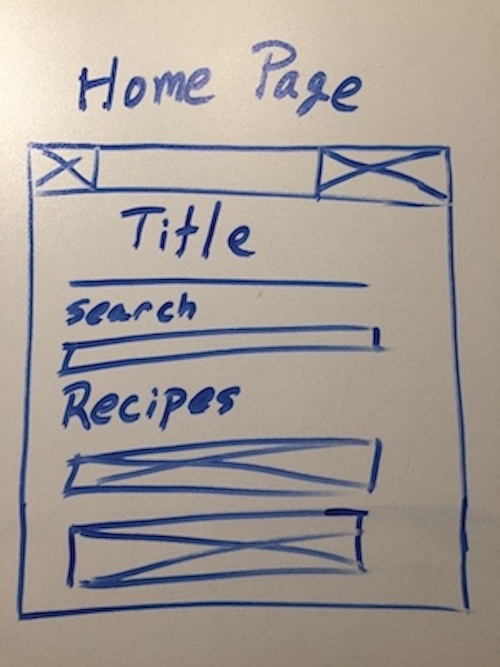 Home Page
Title
search
Recipes